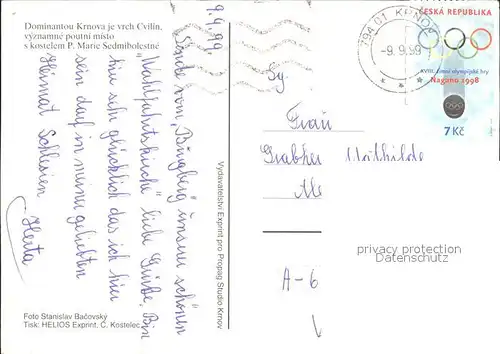 Dominantou Krnova je vrch Cvilín,
významné poutní místo
s kostelem P. Marie Sedmibolestné
9.9.99.
Sende vom "Burgberg" unserer schönen
"Wahlfahrtskirche" liebe Grüße. Bin
hier sehr glücklich das ich hier
sein darf in meiner geliebten
Heimat Schlesien
Herta
Foto Stanislav Bačovský
Tisk: HELIOS Exprint, Č. Kostelec
Vydavatelství Exprint pro Propag Studio Krnov
794 01 KRNOV
- 9. 9. 99
ČESKÁ REPUBLIKA
XVIII. zimní olympijské hry
Nagano 1998
7 Kč
Frau
Grabher Mathilde
A-6
privacy protection
Datenschutz